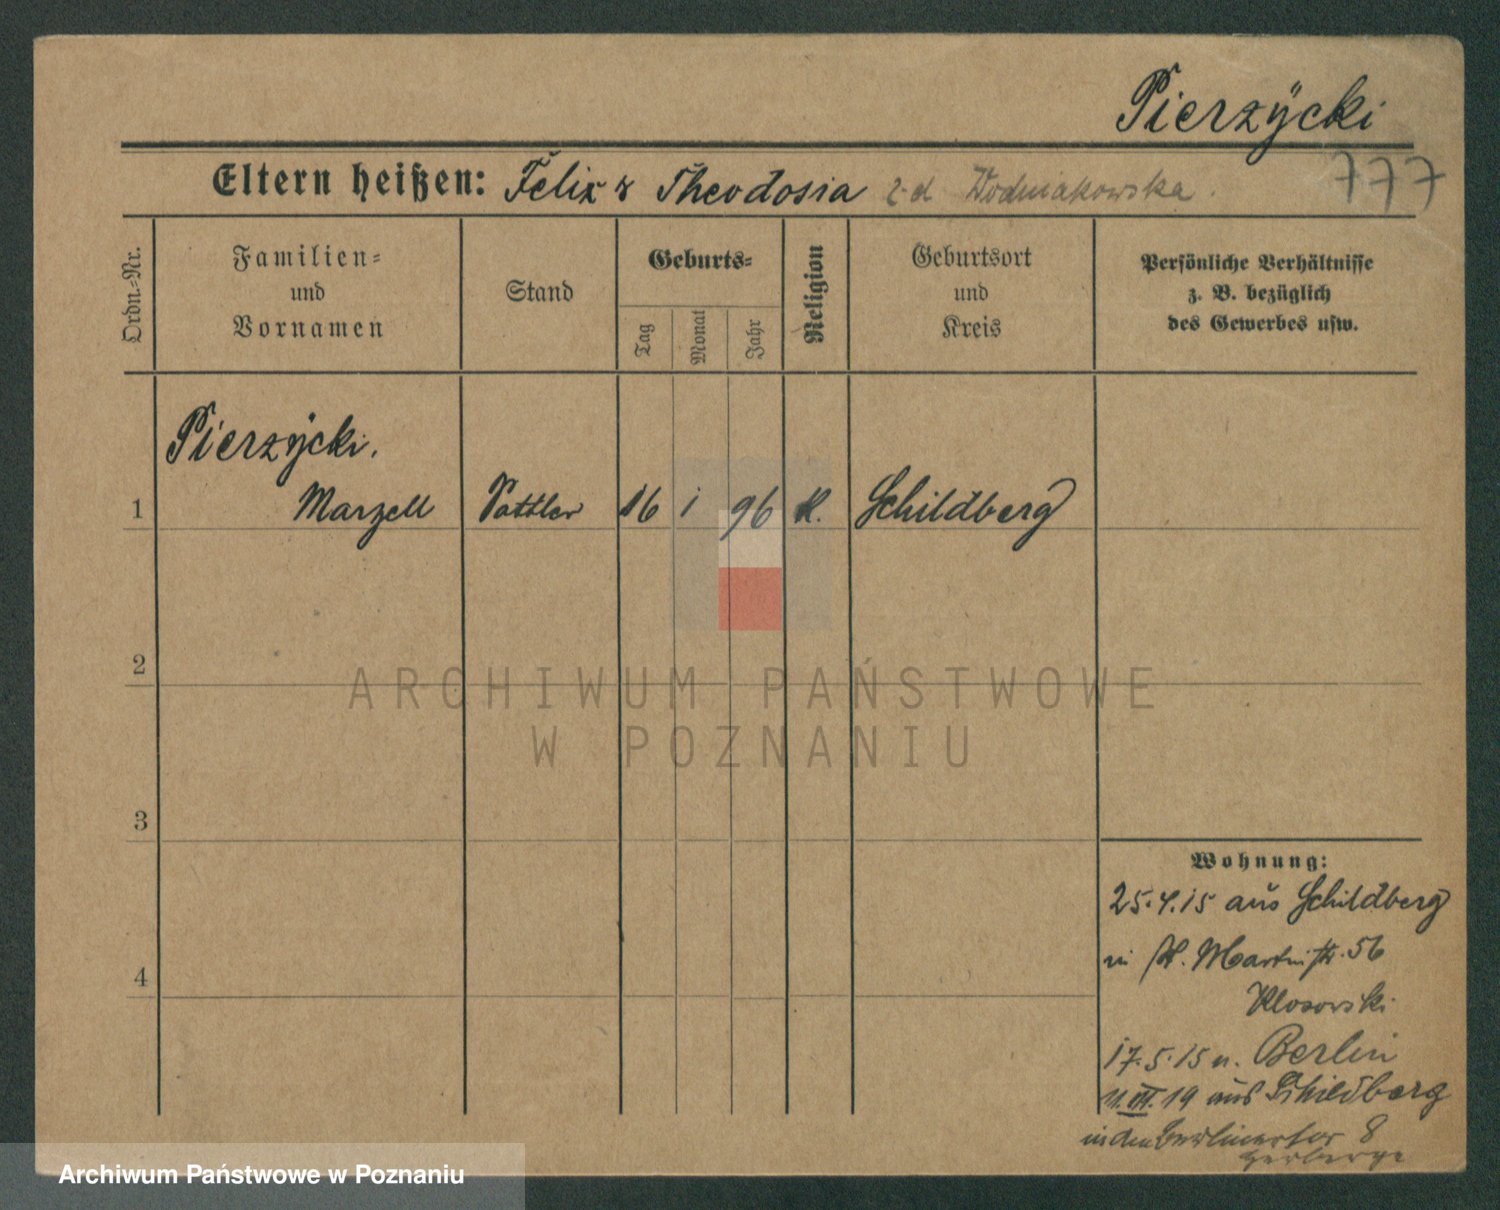 Pierzÿcki
777
Eltern heißen: Felix & Theodosia z d Wodniakowska.
Ordn.-Nr.
Familien-
und
Vornamen
Stand
Geburts-
Tag
Monat
Jahr
Religion
Geburtsort
und
Kreis
Persönliche Verhältnisse
z. B. bezüglich
des Gewerbes usw.
Pierzÿcki.
1 Marzell Sattler 16 1 96 K. Schildberg
2
3
4
ARCHIWUM PAŃSTWOWE
W POZNANIU
Wohnung:
25.4.15 aus Schildberg
in St. Martinstr. 56
Klosowski
17.5.15 n. Berlin
11.III.19 aus Schildberg
in dem Berlinertor 8
Herberge
Archiwum Państwowe w Poznaniu